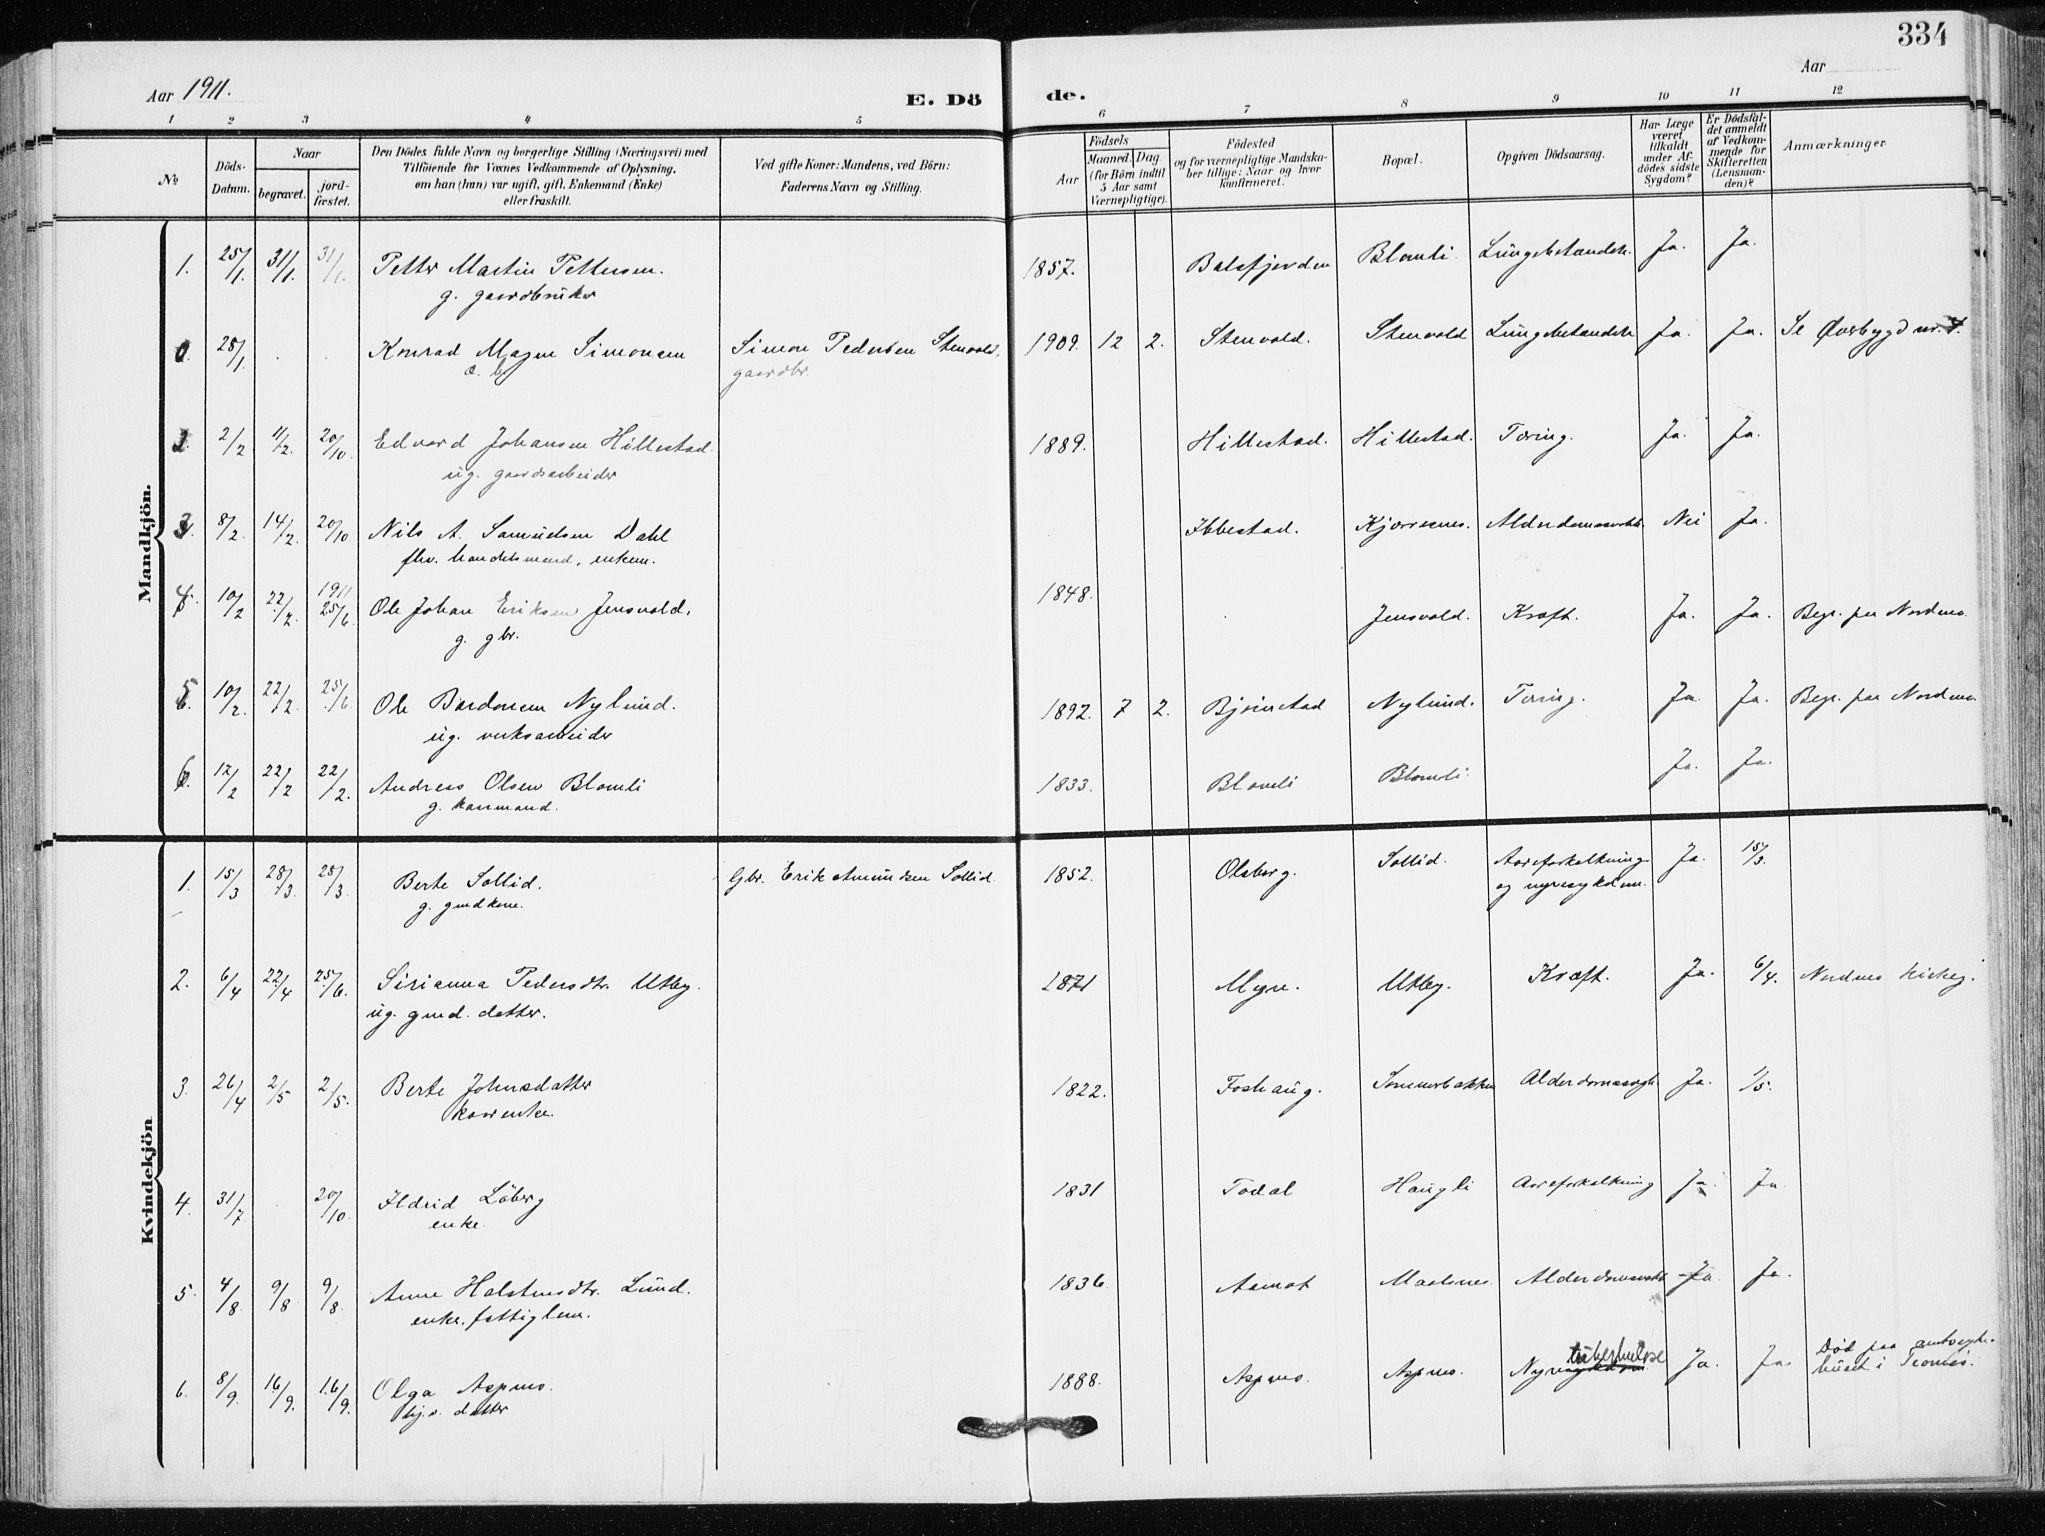 334
Aar 1911.
E. Dö
de.
Aar
1 2 3 4 5 6 7 8 9 10 11 12
No
Döds-Datum.
Naar
begravet.
jord-fæstet.
Den Dödes fulde Navn og borgerlige Stilling (Næringsvei) med
Tilföiende for Voxnes Vedkommende af Oplysning,
om han (hun) var ugift, gift, Enkemand (Enke)
eller fraskilt.
Ved gifte Koner: Mandens, ved Börn:
Faderens Navn og Stilling.
Födsels
Aar
Maaned. Dag
(for Börn indtil
5 Aar samt
Værnepligtige).
Födested
og for værnepligtige Mandska-
ber tillige: Naar og hvor
konfirmeret.
Bopæl.
Opgiven Dödsaarsag.
Har Læge
været
tilkaldt
under Af-
dödes sidste
Sygdom?
Er Dödsfal-
det anmeldt
af Vedkom-
mende for
Skifteretten
(Lensman-
den)?
Anmærkninger.
Mandkjön.
1. 25/1. 31/1. 31/1. Petter Martin Pettersen. 1857. Balsfjorden Blomli. Lungebetændels. Ja. Ja.
g. gaardbruker
28/1. Konrad Magnı Simonsen Simon Pedersen Stenvold, 1909. 12 2. Stenvold. Stenvold Lungebetændels Ja. Ja. Se Øverbygd nr.
gaardbr.
2/2 11/2. 20/10. Edvard Johansen Hillestad. 1889. Hillestad. Hillestad. Tæring. Ja. Ja.
ug. gaardsarbeider
3. 8/2. 14/2. 20/10 Nils A. Samuelsen Dahl Ibbestad. Kjærresnes. Alderdomssvakh. Nei Ja.
fhv. handelsmand, enkem.
4. 10/2 22/2. 1911 25/6. Ole Johan Eriksen Jensvold. 1848. Jensvold. Kræft. Ja. Ja. Begr. paa Nordmo.
g. gbr.
5. 10/2. 22/2. 25/6. Ole Bardonsen Nylund. 1892. 7 2. Bjørnstad Nylund. Tæring. Ja. Ja. Begr. paa Nordmo.
ug. verksarbeider
6. 12/2 22/2 22/2. Andreas Olsen Blomli 1833. Blomli Blomli. Ja. Ja.
g. kaarmand.
Kvindekjön
1. 15/3 28/3. 28/3. Berte Sollid. Gbr. Erik Amundsen Sollid. 1852. Olsborg. Sollid. Aareforkalkning Ja. 15/3.
g. gmdkone. og nyresykdom.
2. 6/4 22/4 25/6. Sirianna Pedersdtr. Utby. 1871 Myre. Utby. Kræft. Ja. 6/4. Nordmos kirkeg.
ug. gmd. datter.
3. 26/4 2/5 2/5. Berte Johnsdatter 1822. Foshaug. Sommerbakken Alderdomssvgh. Ja. 1/5.
kaarenke.
4. 31/7 20/10. Ildrid Løberg 1831 Todal Haugli Aareforkalkning Ja. Ja
enke.
5. 4/8. 9/8 9/8. Anne Halstensdtr. Lund. 1836. Aamot Maalsnes. Alderdomssvakh Ja Ja.
enke, fattiglem.
6. 8/9. 16/9. 16/9. Olga Aspmo. 1888. Aspmo. Aspmo. Nyresykdom tuberkulose Ja. Ja. Død paa amtssyke-
hj.v. datter huset i Tromsø.